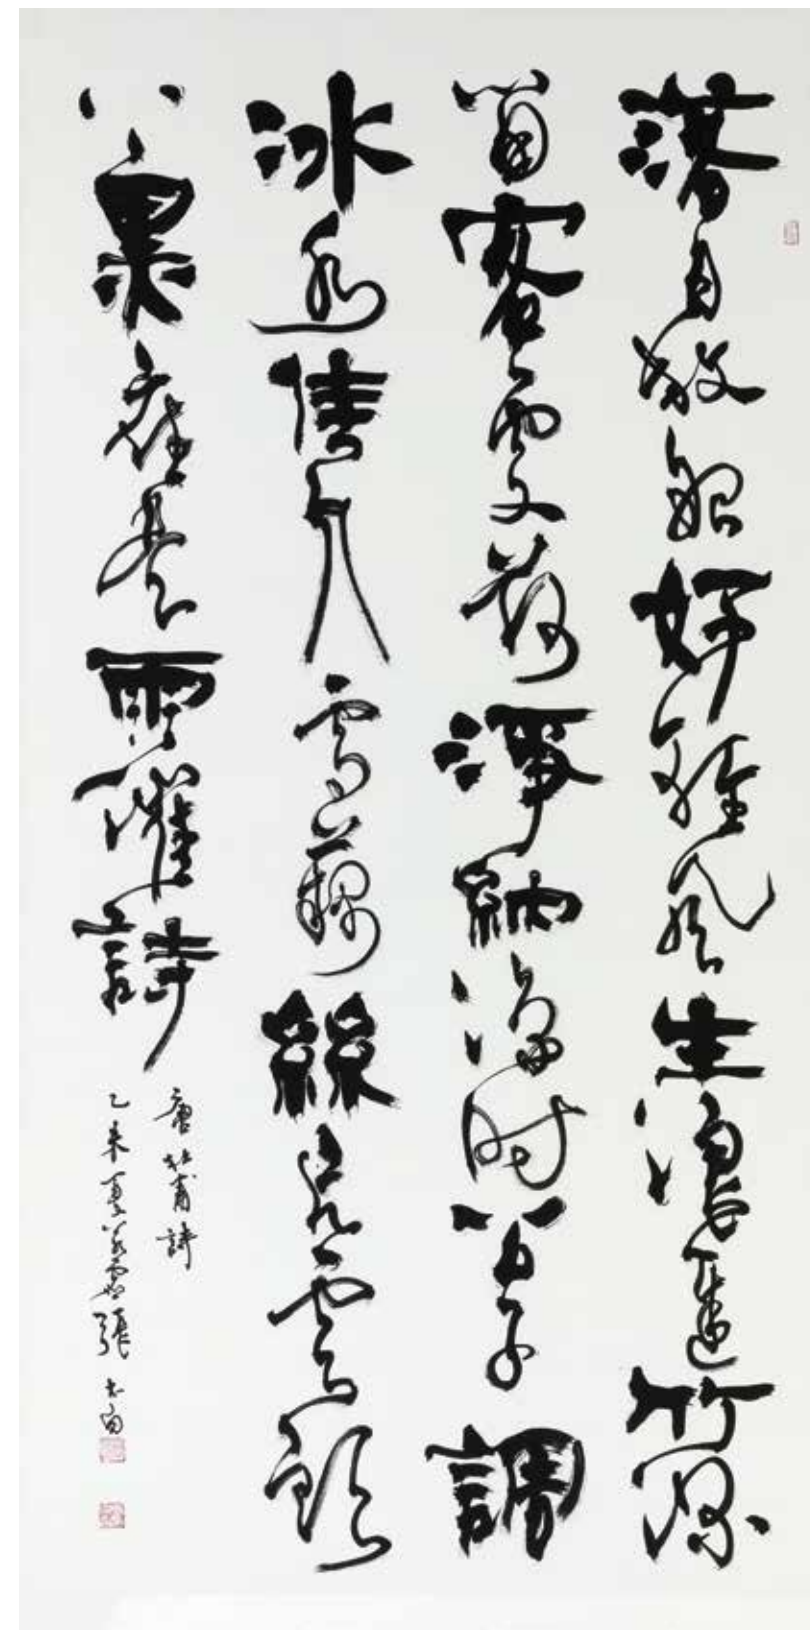 落日放船好輕風生浪遲竹深
留客處荷淨納涼時公子調
冰水佳人雪藕絲片雲頭
上黑應是雨催詩
唐杜甫詩
乙未夏張